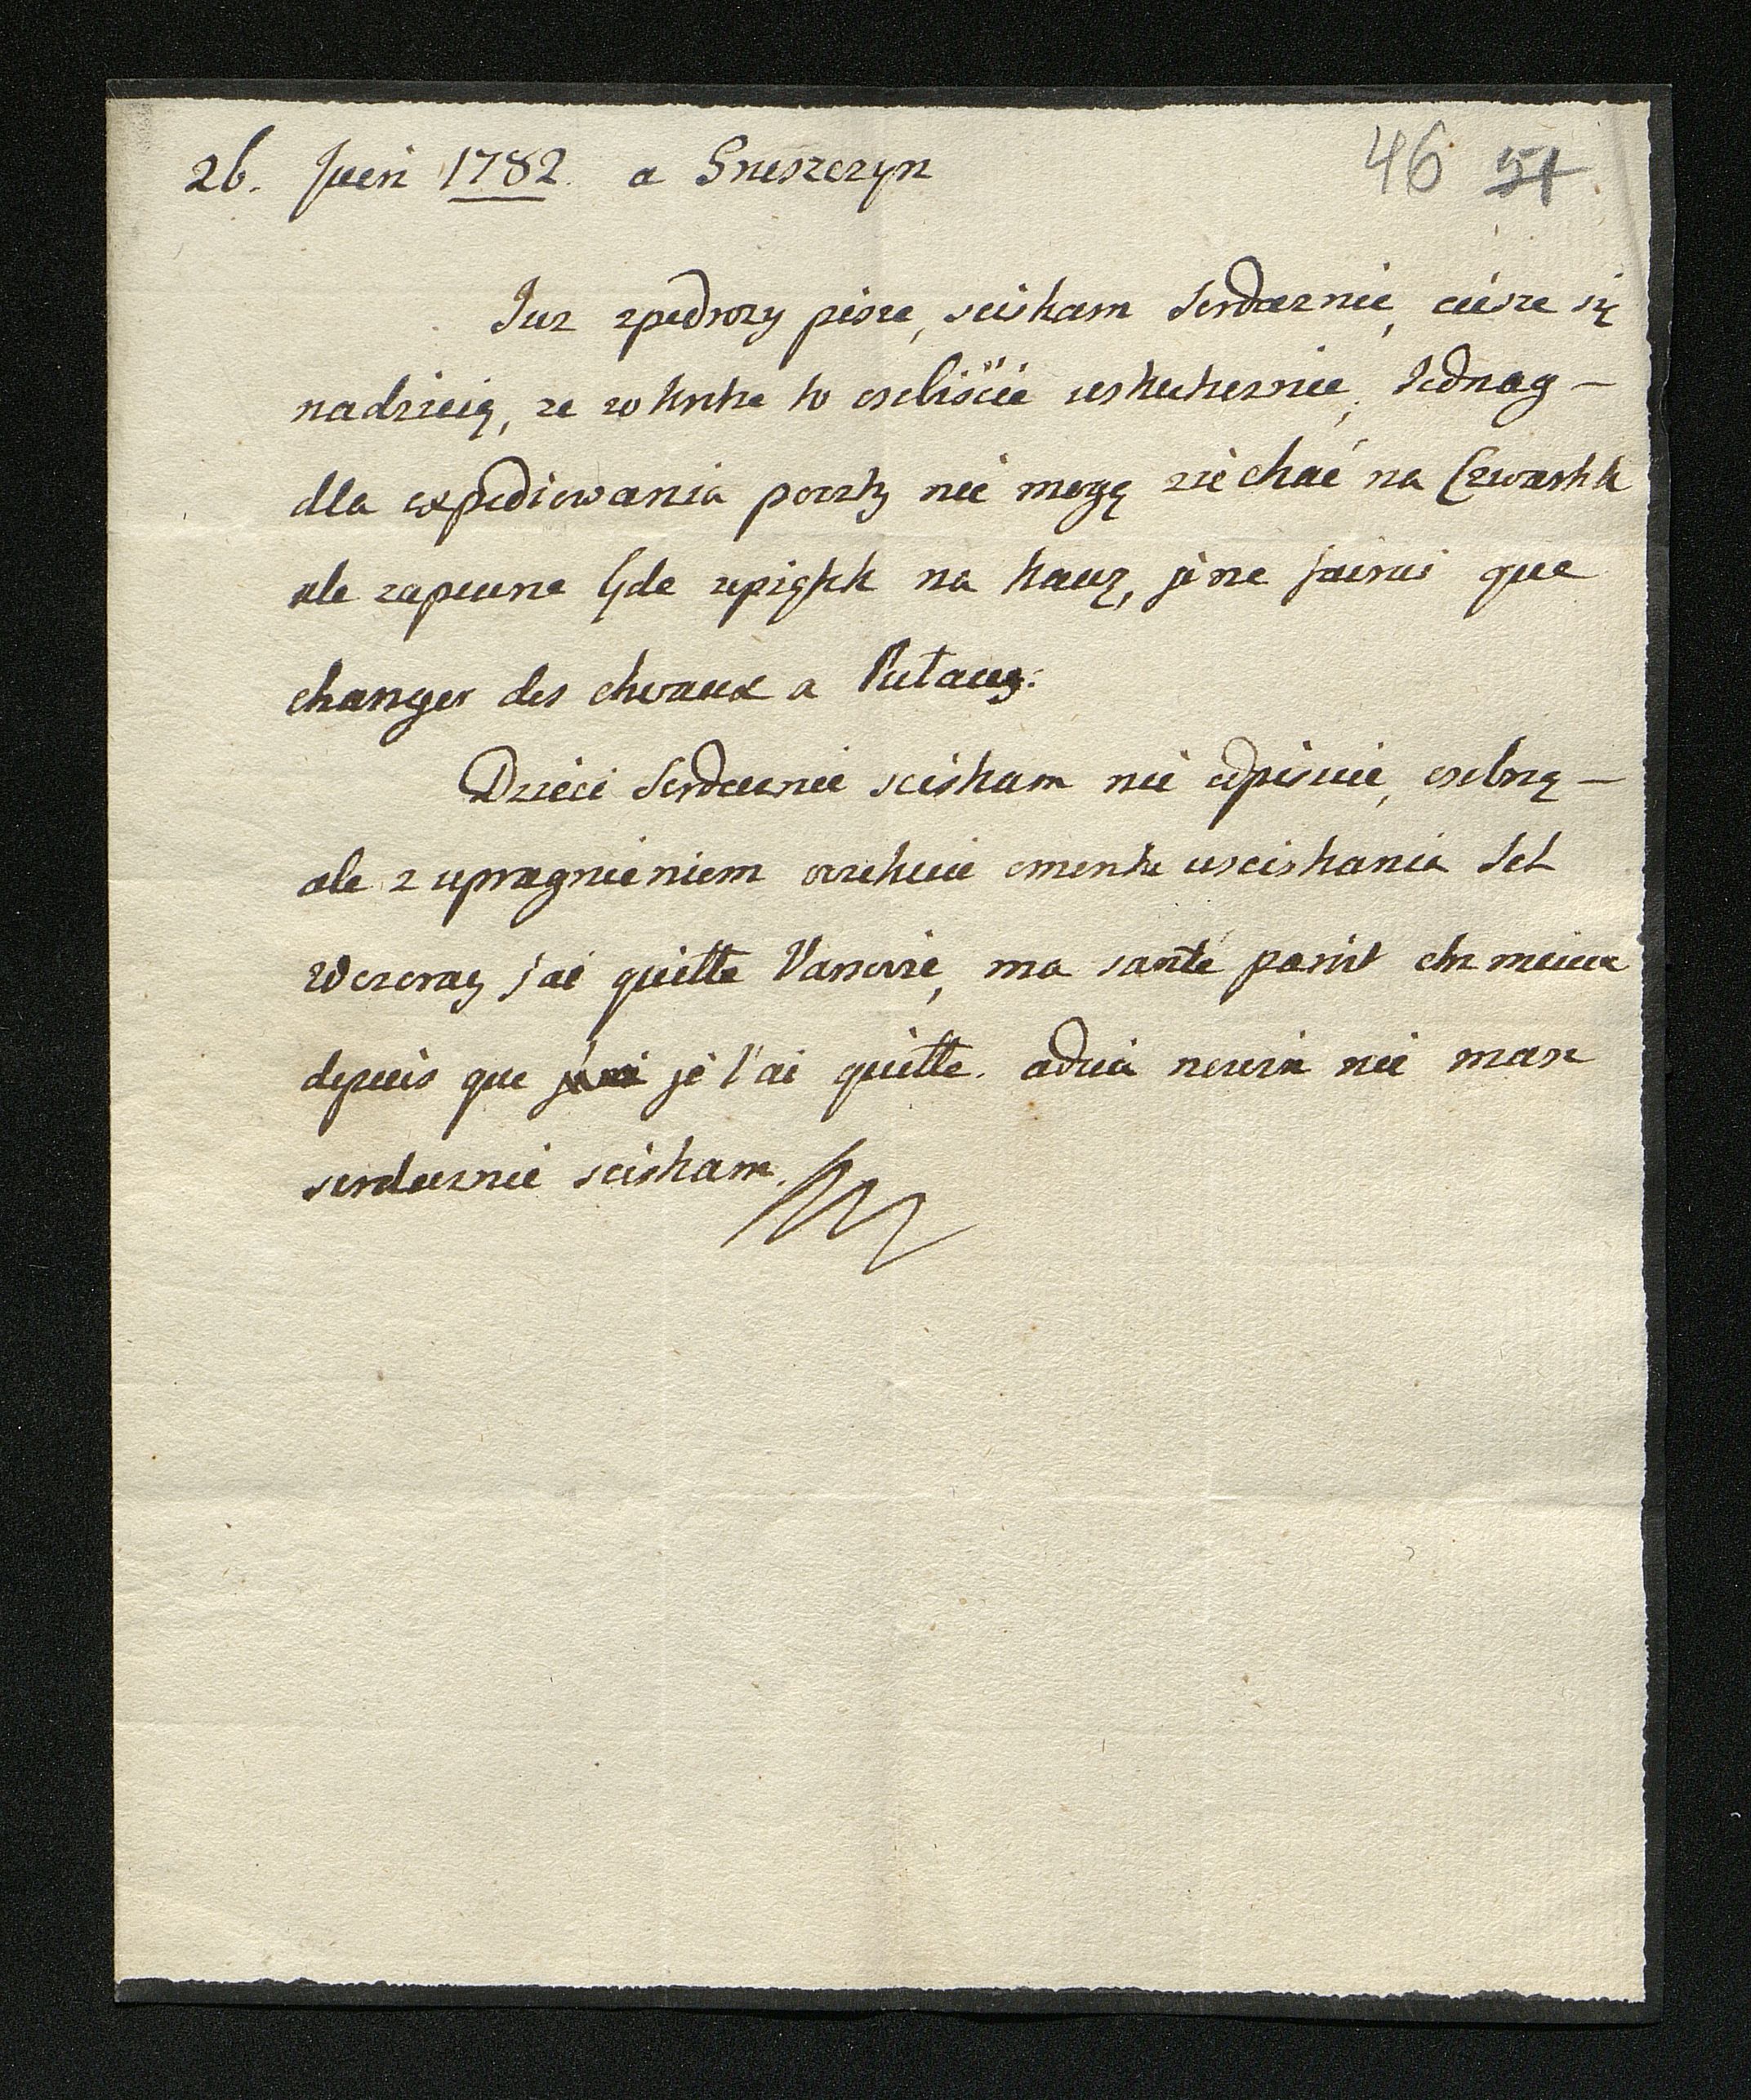 26. Juin 1782. a Sneszczyn 46 51
Iuz zpodrozy pisze, sciskam serdecznie, ciesze się
nadzieią, ze wkrotce to osobiscie uskutecznie, Iednag -
dla expediowania poczty nie mogę ziechać na Czwartek
ale zapewne będe wpiątek na kawę, je ne fairai que
changer des chevaux a Puławy.
Dzieci Serdecznie sciskam nie odpisuie, osobną -
ale z upragnieniem oczekuie momentu usciskania Ich
Wczoray j'ai quitte Varsovie, ma santé parait etre mieux
depuis que je l'ai quitte. adieu nie masz
serdecznie sciskam.